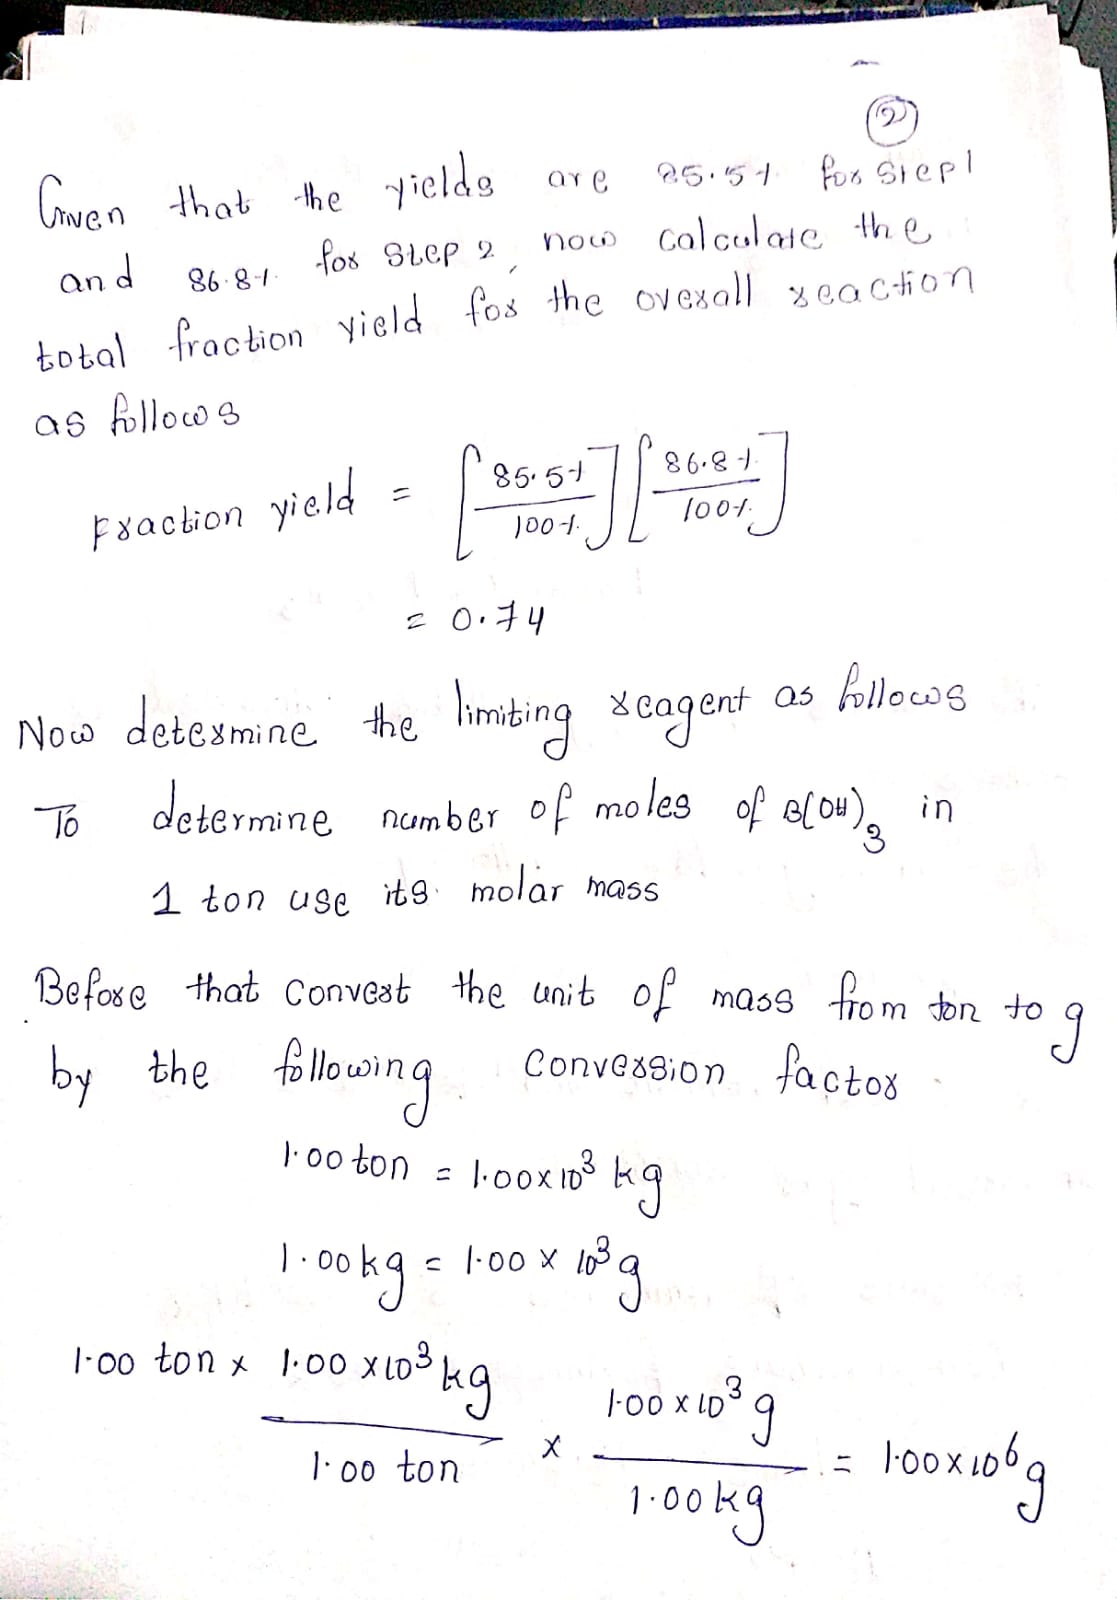 2
Given that the yields are 85.5% for Step 1
and 86.8% for Step 2, now calculate the
total fraction yield for the overall reaction
as follows
Fraction yield = [85.5%/100%] [86.8%/100%]
= 0.74
Now determine the limiting reagent as follows
To determine number of moles of B(OH)₃ in
1 ton use its molar mass
Before that convert the unit of mass from ton to g
by the following conversion factor
1.00 ton = 1.00 × 10³ kg
1.00 kg = 1.00 × 10³ g
1.00 ton × 1.00 × 10³ kg / 1.00 ton × 1.00 × 10³ g / 1.00 kg = 1.00 × 10⁶ g